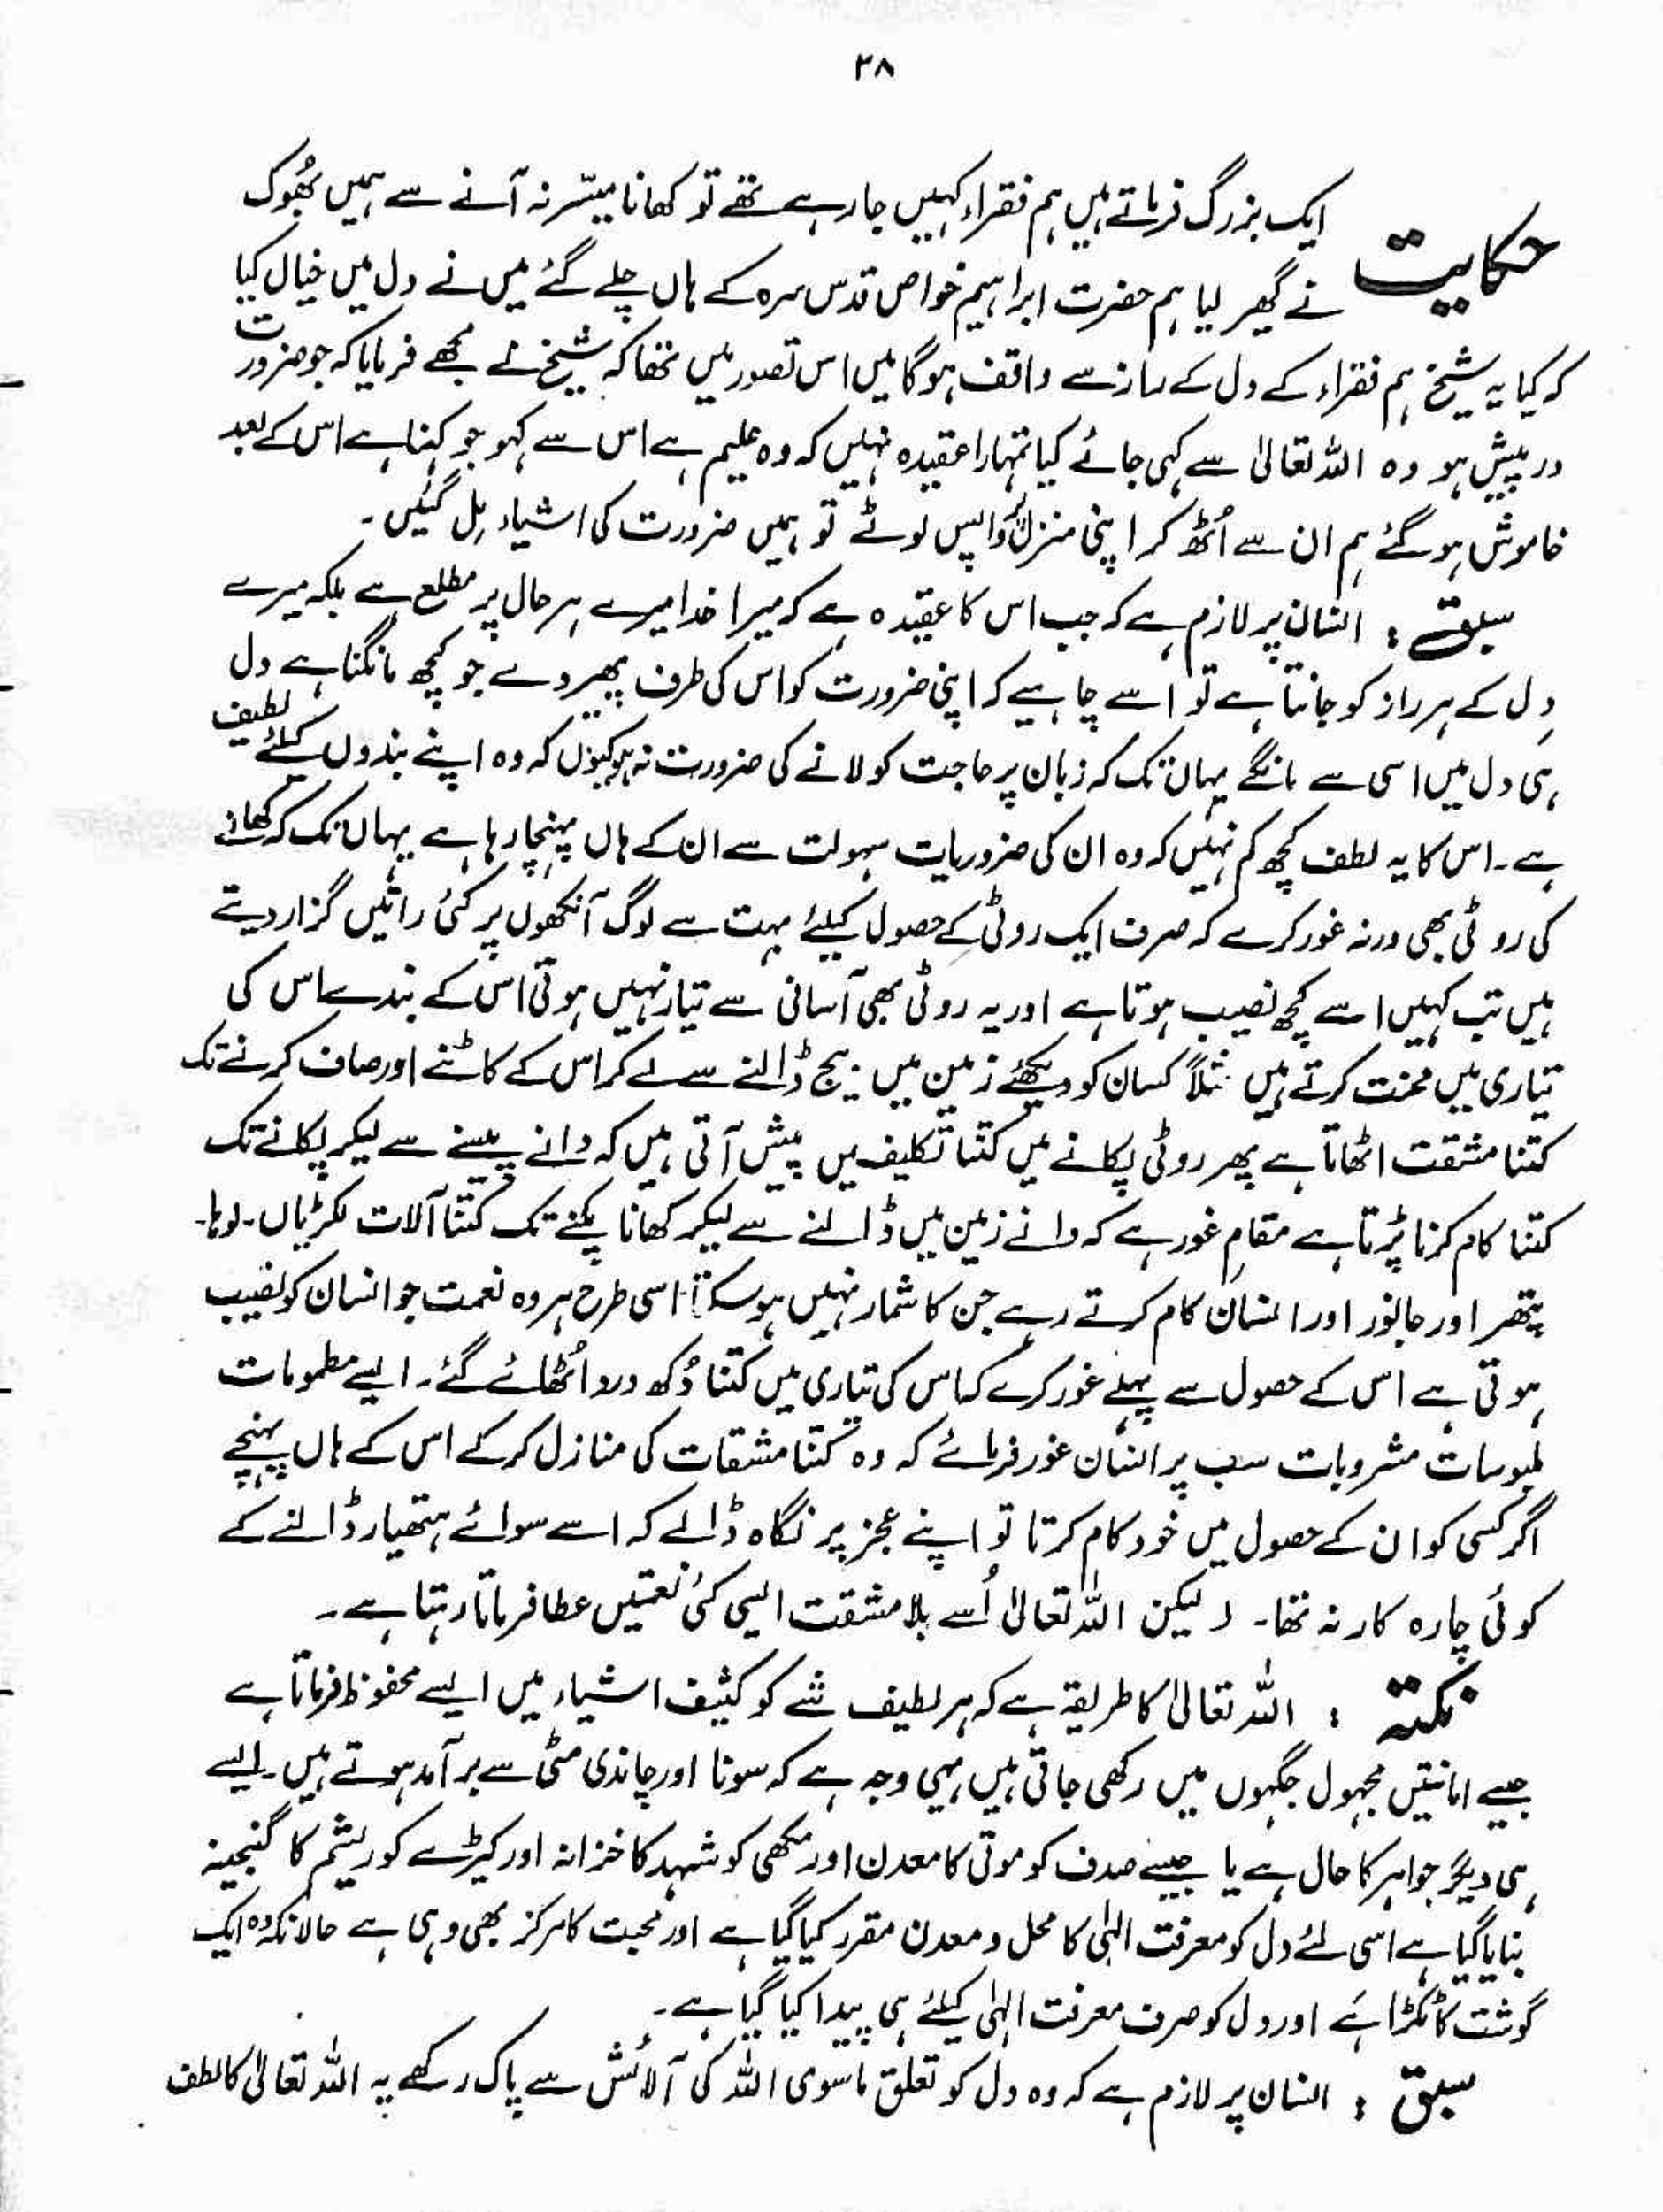 ۳۸
ایک بزرگ فرماتے ہیں ہم فقراء کہیں جا رہے تھے تو کھانا میسّر نہ آنے سے ہمیں بُھوک
حکایت
نے گھیر لیا ہم حضرت ابراہیم خواص قدس سرہ کے ہاں چلے گئے میں نے دل میں خیال کیا
کہ کیا یہ شیخ ہم فقراء کے دل کے راز سے واقف ہوگا میں اس تصور میں تھا کہ شیخ نے مجھے فرمایا کہ جو ضرورت
درپیش ہو وہ اللہ تعالیٰ سے کہی جائے کیا تمہارا عقیدہ نہیں کہ وہ علیم ہے اس سے کہو جو کہنا ہے اس کے بعد
خاموش ہو گئے ہم ان سے اُٹھ کر اپنی منزل کو واپس لوٹے تو ہمیں ضرورت کی اشیاء مِل گئیں۔
سبق : انسان پر لازم ہے کہ جب اس کا عقیدہ ہے کہ میرا خدا میرے ہر حال پر مطلع ہے بلکہ میرے
دِل کے ہر راز کو جانتا ہے تو اسے چاہیے کہ اپنی ضرورت کو اس کی طرف پھیر دے جو کچھ مانگنا ہے دل
ہی دل میں اسی سے مانگے یہاں تک کہ زبان پر حاجت کو لانے کی ضرورت نہ ہو کیوں کہ وہ اپنے بندوں کیلئے لطیف
ہے۔ اس کا یہ لطف کچھ کم نہیں کہ وہ ان کی ضروریات سہولت سے ان کے ہاں پہنچا رہا ہے یہاں تک کہ کھانے
کی روٹی بھی ورنہ غور کرے کہ صرف ایک روٹی کے حصول کیلئے بہت سے لوگ آنکھوں پر کئی راتیں گزار دیتے
ہیں تب کہیں اسے کچھ نصیب ہوتا ہے اور یہ روٹی بھی آسانی سے تیار نہیں ہوتی اس کے بندے اس کی
تیاری میں محنت کرتے ہیں مثلاً کسان کو دیکھئے زمین میں بیج ڈالنے سے لے کر اس کے کاٹنے اور صاف کرنے تک
کتنا مشقت اٹھاتا ہے پھر روٹی پکانے میں کتنا تکلیفیں پیش آتی ہیں کہ دانے پیسنے سے لیکر پکانے تک
کتنا کام کرنا پڑتا ہے مقامِ غور ہے کہ دانے زمین میں ڈالنے سے لیکر کھانا پکنے تک کتنا آلات لکڑیاں۔ لوہا۔
پتھر اور جانور اور انسان کام کرتے رہے جن کا شمار نہیں ہو سکتا اسی طرح ہر وہ نعمت جو انسان کو نصیب
ہوتی ہے اس کے حصول سے پہلے غور کرے کہ اس کی تیاری میں کتنا دُکھ درد اُٹھائے گئے۔ ایسے مطعومات
ملبوسات مشروبات سب پر انسان غور فرمائے کہ وہ کتنا مشقات کی منازل کر کے اس کے ہاں پہنچے
اگر کسی کو ان کے حصول میں خود کام کرتا تو اپنے عجز پر نگاہ ڈالے کہ اسے سوائے ہتھیار ڈالنے کے
کوئی چارہ کار نہ تھا۔ لیکن اللہ تعالیٰ اُسے بلا مشقت ایسی کئی نعمتیں عطا فرماتا رہتا ہے۔
نکتہ : اللہ تعالیٰ کا طریقہ ہے کہ ہر لطیف شے کو کثیف اشیاء میں ایسے محفوظ فرماتا ہے
جیسے امانتیں مجہول جگہوں میں رکھی جاتی ہیں یہی وجہ ہے کہ سونا اور چاندی مٹی سے برآمد ہوتے ہیں۔ ایسے
ہی دیگر جواہر کا حال ہے یا جیسے صدف کو موتی کا معدن اور مکھی کو شہد کا خزانہ اور کیڑے کو ریشم کا گنجینہ
بنایا گیا ہے اسی لئے دل کو معرفت الہٰی کا محل و معدن مقرر کیا گیا ہے اور محبت کا مرکز بھی وہی ہے حالانکہ وہ ایک
گوشت کا ٹکڑا ہے اور دل کو صرف معرفت الہٰی کیلئے ہی پیدا کیا گیا ہے۔
سبق : انسان پر لازم ہے کہ وہ دل کو تعلق ماسوی اللہ کی آلائش سے پاک رکھے یہ اللہ تعالیٰ کا لطف